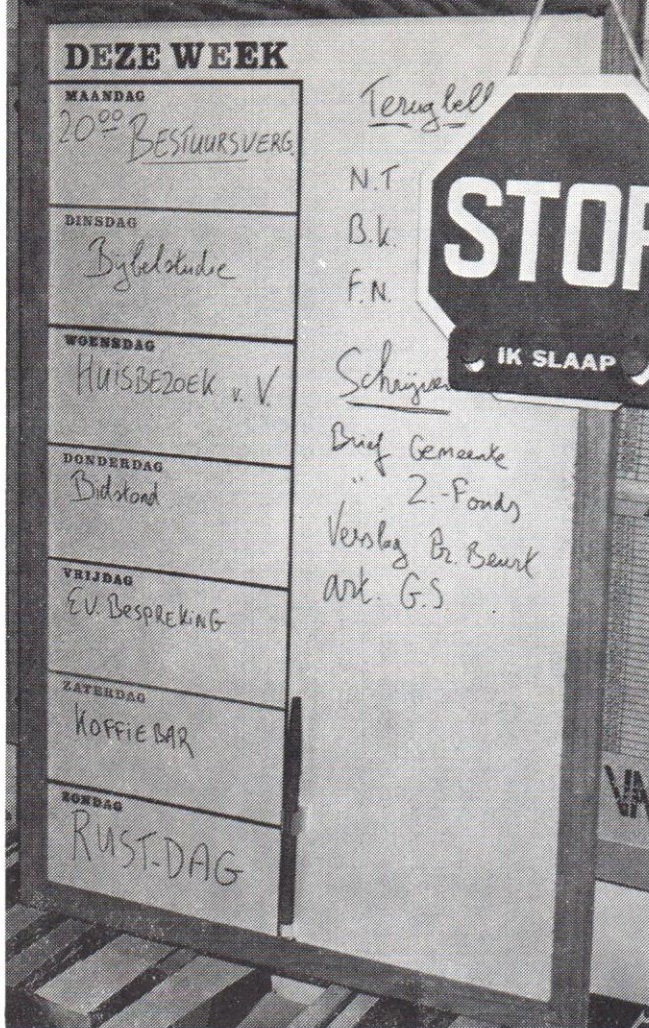 DEZE WEEK
MAANDAG
2000 BESTUURSVERG.
DINSDAG
Bijbelstudie
WOENSDAG
HUISBEZOEK v. V.
DONDERDAG
Bidstond
VRIJDAG
EV. BESPREKING
ZATERDAG
KOFFIEBAR
ZONDAG
RUST-DAG
Terugbell
N.T
B.k.
F.N.
Schrijven
Brief Gemeente
" Z.-Fonds
Verslag Br. Beurt
art. G.S
STOP
IK SLAAP
VA